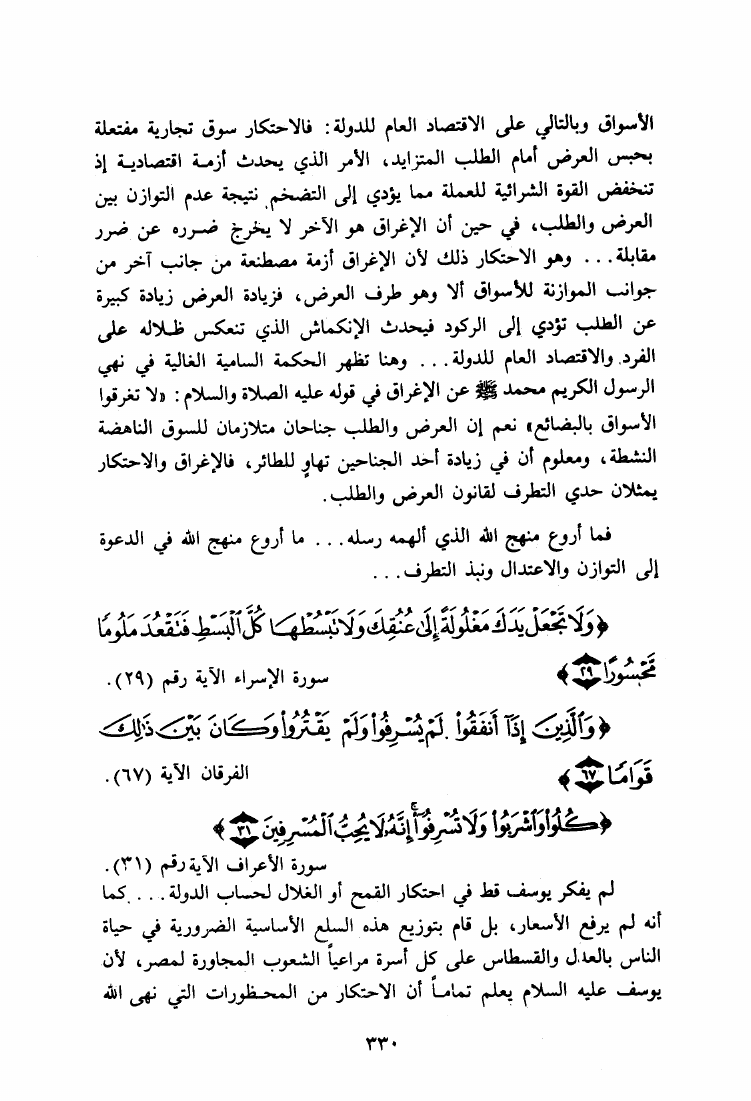 الأسواق وبالتالي على الاقتصاد العام للدولة: فالاحتكار سوق تجارية مفتعلة
بحبس العرض أمام الطلب المتزايد، الأمر الذي يحدث أزمة اقتصادية إذ
تنخفض القوة الشرائية للعملة مما يؤدي إلى التضخم نتيجة عدم التوازن بين
العرض والطلب، في حين أن الإغراق هو الآخر لا يخرج ضرره عن ضرر
مقابلة... وهو الاحتكار ذلك لأن الإغراق أزمة مصطنعة من جانب آخر من
جوانب الموازنة للأسواق ألا وهو طرف العرض، فزيادة العرض زيادة كبيرة
عن الطلب تؤدي إلى الركود فيحدث الإنكماش الذي تنعكس ظلاله على
الفرد والاقتصاد العام للدولة... وهنا تظهر الحكمة السامية الغالية في نهي
الرسول الكريم محمد ﷺ عن الإغراق في قوله عليه الصلاة والسلام: «لا تغرقوا
الأسواق بالبضائع» نعم إن العرض والطلب جناحان متلازمان للسوق الناهضة
النشطة، ومعلوم أن في زيادة أحد الجناحين تهاوٍ للطائر، فالإغراق والاحتكار
يمثلان حدي التطرف لقانون العرض والطلب.
فما أروع منهج الله الذي ألهمه رسله... ما أروع منهج الله في الدعوة
إلى التوازن والاعتدال ونبذ التطرف...
﴿وَلَا تَجْعَلْ يَدَكَ مَغْلُولَةً إِلَىٰ عُنُقِكَ وَلَا تَبْسُطْهَا كُلَّ ٱلْبَسْطِ فَتَقْعُدَ مَلُومًا
مَّحْسُورًا ٢٩﴾ سورة الإسراء الآية رقم (٢٩).
﴿وَٱلَّذِينَ إِذَآ أَنفَقُوا۟ لَمْ يُسْرِفُوا۟ وَلَمْ يَقْتُرُوا۟ وَكَانَ بَيْنَ ذَٰلِكَ
قَوَامًا ٦٧﴾ الفرقان الآية (٦٧).
﴿كُلُوا۟ وَٱشْرَبُوا۟ وَلَا تُسْرِفُوٓا۟ۚ إِنَّهُۥ لَا يُحِبُّ ٱلْمُسْرِفِينَ ٣١﴾
سورة الأعراف الآية رقم (٣١).
لم يفكر يوسف قط في احتكار القمح أو الغلال لحساب الدولة.... كما
أنه لم يرفع الأسعار، بل قام بتوزيع هذه السلع الأساسية الضرورية في حياة
الناس بالعدل والقسطاس على كل أسرة مراعياً الشعوب المجاورة لمصر، لأن
يوسف عليه السلام يعلم تماماً أن الاحتكار من المحظورات التي نهى الله
٣٣٠